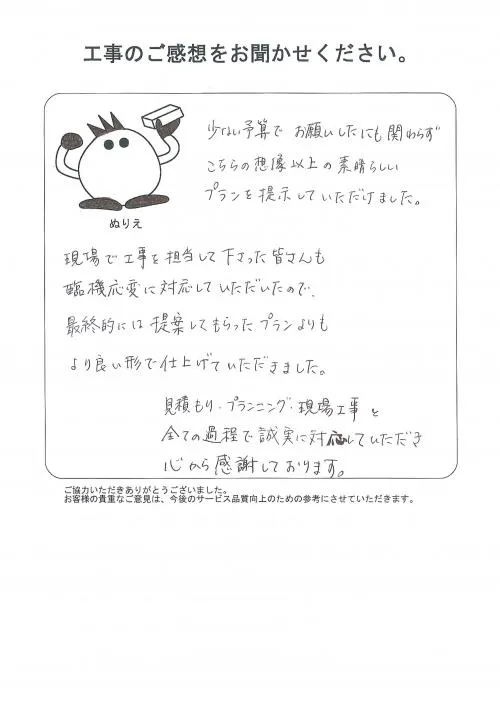 工事のご感想をお聞かせください。
少ない予算で お願いしたにも関わらず
こちらの想像以上の素晴らしい
プランを提示していただけました。
ぬりえ
現場で工事を担当して下さった皆さんも
臨機応変に対応していただいたので、
最終的には提案してもらったプランよりも
より良い形で仕上げていただきました。
見積もり・プランニング・現場工事と
全ての過程で誠実に対応していただき
心から感謝しております。
ご協力いただきありがとうございました。
お客様の貴重なご意見は、今後のサービス品質向上のための参考にさせていただきます。